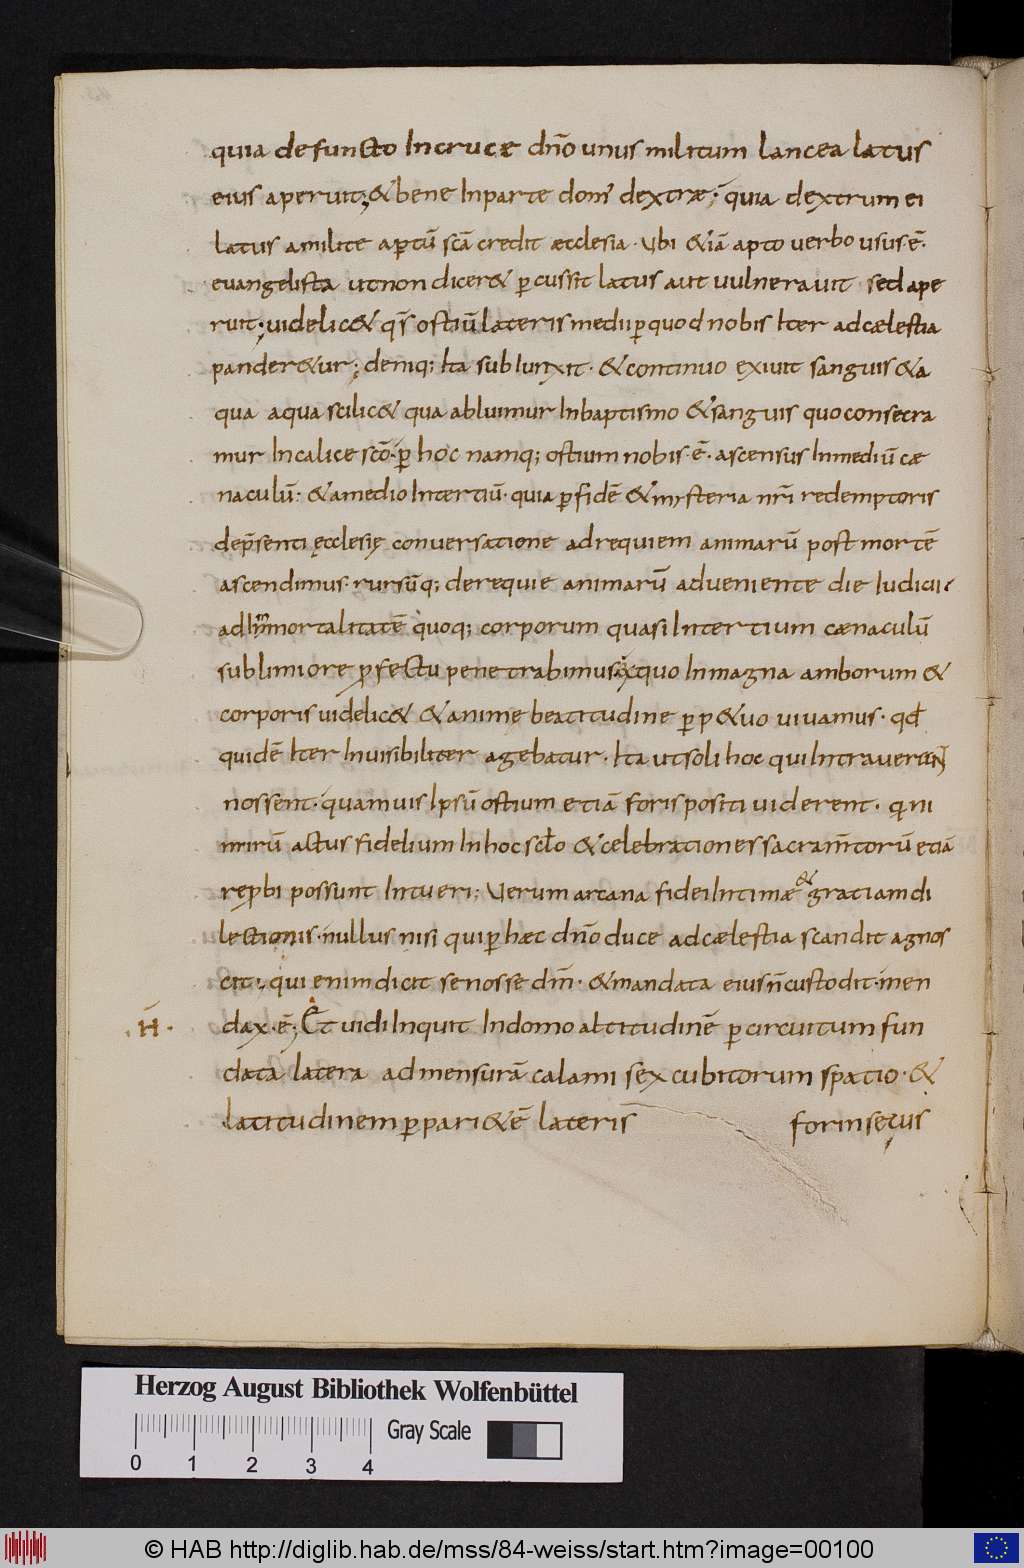 quia defuncto incruce dño unus militum lancea latus
eius aperuit; & bene inparte dom' dextræ; quia dextrum ei
latus amilite aptū scā credit æcclesia. Ubi &iā apto verbo usus ē.
euangelista ut non dicer& pcussit latus aut uulnerauit sed ape
ruit; uidelic& qs̄ ostiū lateris medii pquod nobis iter adcælestia
pander&ur; deniq; ita subiunxit. & continuo exiuit sanguis & a
qua aqua scilic& qua abluimur inbaptismo & sanguis quo consecra
mur incalice scō. p hoc namq; ostium nobis ē. ascensus inmediū cæ
naculū. & amedio intertiū. quia pfidē & mysteria nrī redemptoris
dep̄senti ęcclesię conuersatione adrequiem animarū post mortē
ascendimus. rursūq; derequie animarū adueniente die iudicii
adimmortalitatē quoq; corporum quasi intertium cænaculū
sublimiore pfectu penetrabimus. inquo inmagna amborum &
corporis uidelic& & anime beatitudine pp&uo uiuamus. qd̄
quidē iter inuisibiliter agebatur. ita ut soli hoc qui intrauerunt
nossent. quamuis ipsū ostium etiā foris positi uiderent. qi ni
mirū actus fidelium inhoc sclo & celebrationes sacram̄torū etiā
repbi possunt intueri; Uerum arcana fidei intimæ & gratiam di
lectionis. nullus nisi qui p hæc dño duce adcælestia scandit agnos
cit; qui enim dicit se nosse dm̄. & mandata eius n̄ custodit. men
.H̄. dax. ē; Et uidi inquit indomo altitudinē pcircuitum fun
data latera admensurā calami sex cubitorum spatio. &
latitudinem pparietē lateris forinsecus
Herzog August Bibliothek Wolfenbüttel
Gray Scale
0 1 2 3 4
© HAB http://diglib.hab.de/mss/84-weiss/start.htm?image=00100